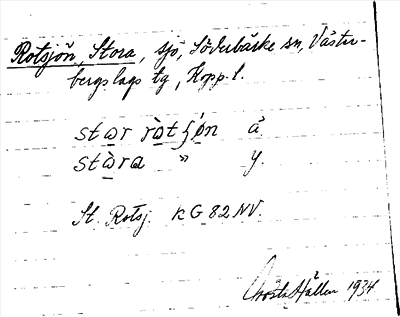 Rotsjön, Stora, sjö, Söderbärke sn, Väster-
bergslags tg, Kopp. l.
star ròtʃøn ä.
stòra " y.
St. Rotsj. kG 82 NV.
Hällen 1934